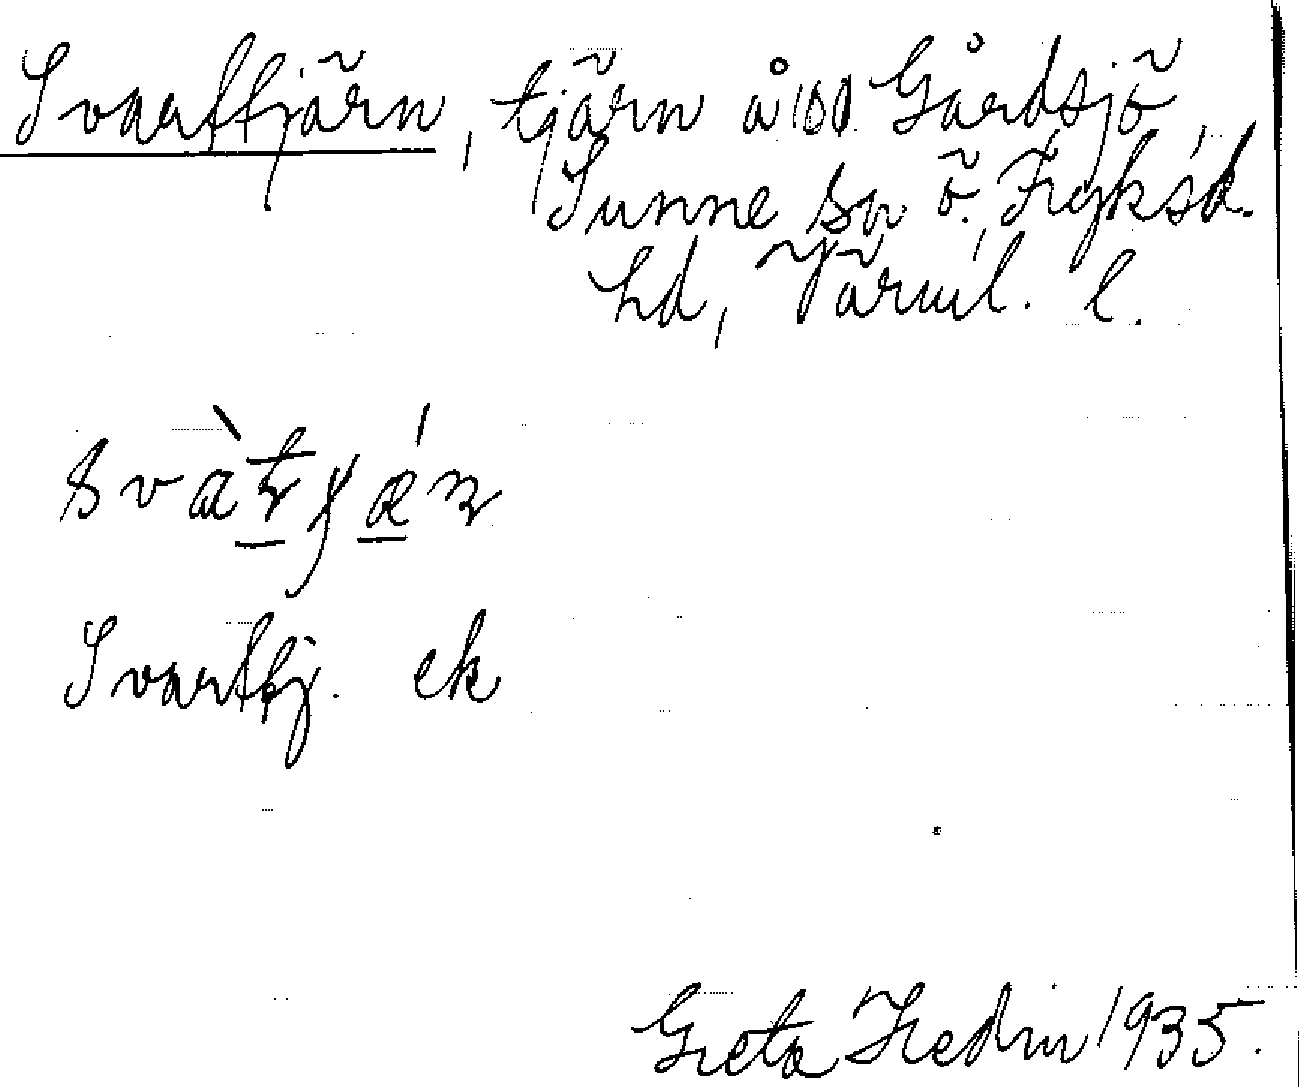 Svarttjärn, tjärn å 100 Gårdsjö,
Sunne sn Ö. Fryksd.
hd, Värml. l.
Svarttj. ek
Greta Hedin 1935.